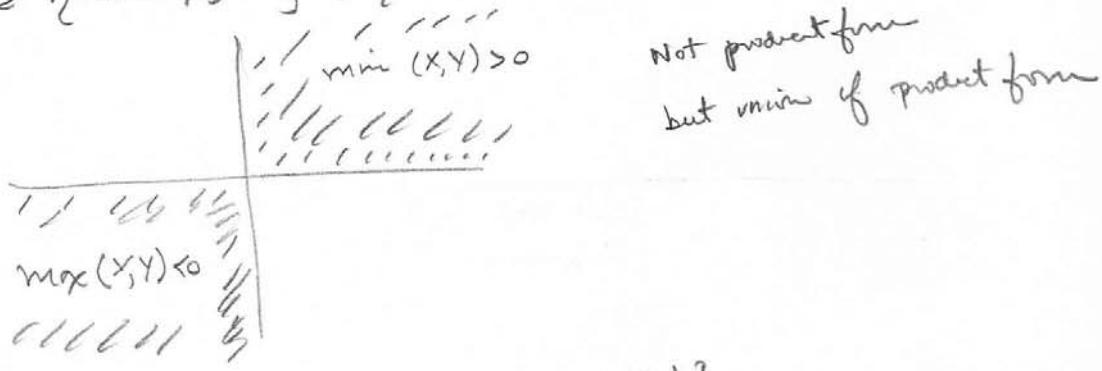 min (X,Y) > 0
Not product form
but union of product form
max (X,Y) < 0